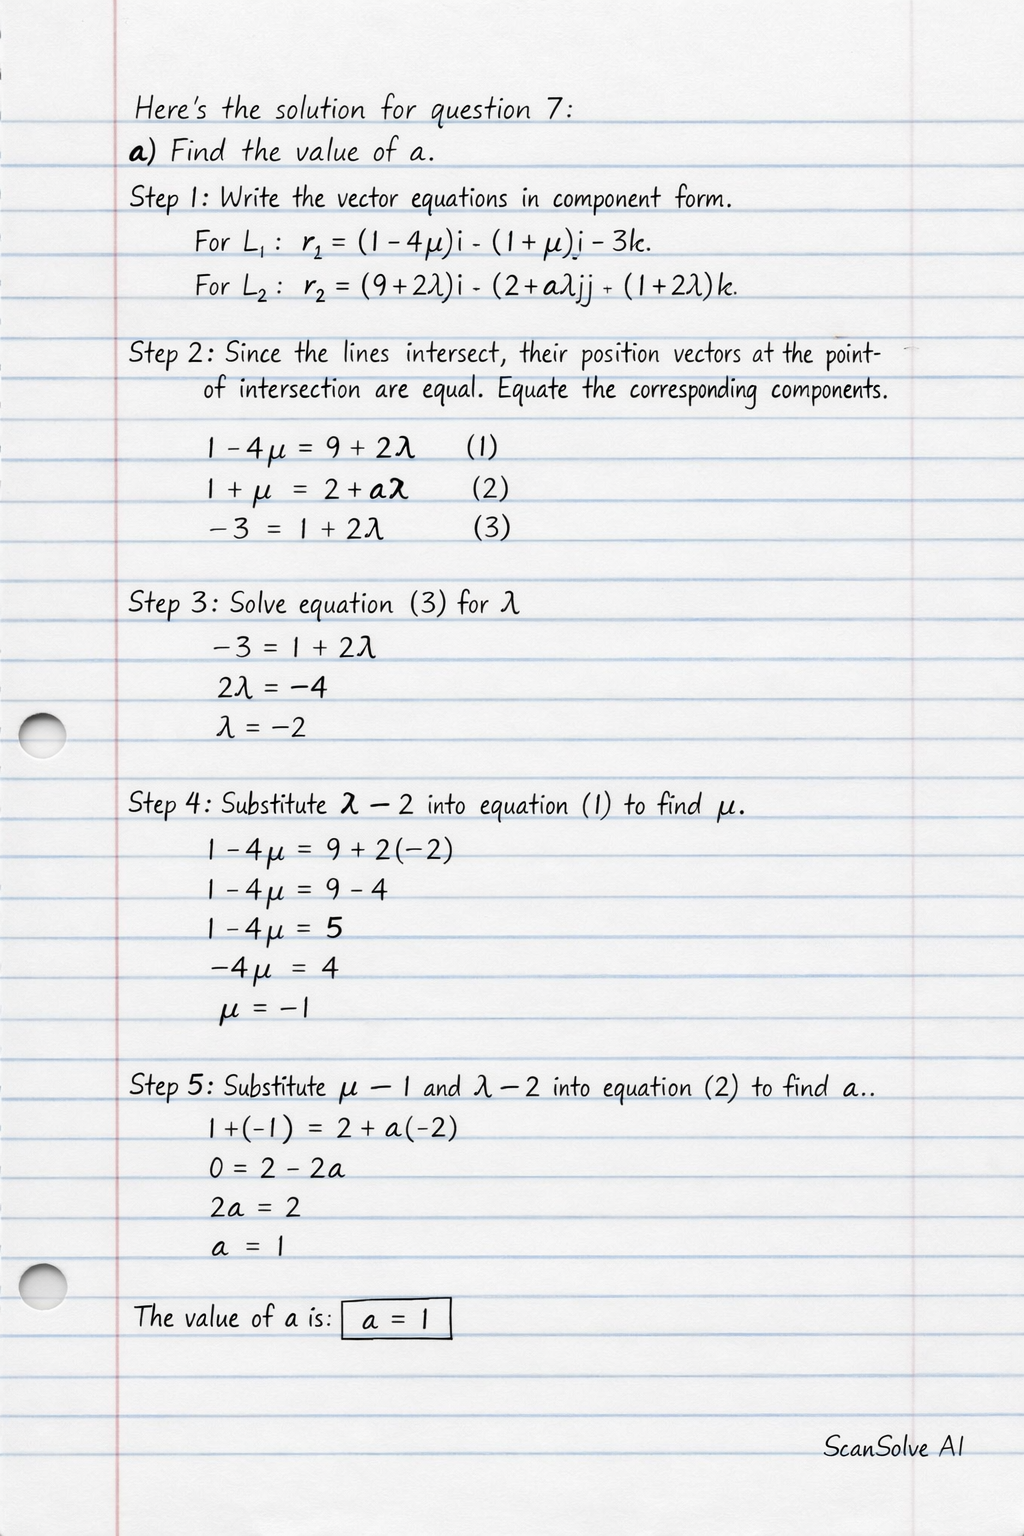 Here's the solution for question 7:
a) Find the value of a.
Step 1: Write the vector equations in component form.
For L₁ : r₁ = (1 - 4μ)i - (1 + μ)j - 3k.
For L₂ : r₂ = (9 + 2λ)i - (2 + aλjj - (1 + 2λ)k.
Step 2: Since the lines intersect, their position vectors at the point-
of intersection are equal. Equate the corresponding components.
1 - 4μ = 9 + 2λ (1)
1 + μ = 2 + aλ (2)
-3 = 1 + 2λ (3)
Step 3: Solve equation (3) for λ
-3 = 1 + 2λ
2λ = -4
λ = -2
Step 4: Substitute λ - 2 into equation (1) to find μ.
1 - 4μ = 9 + 2(-2)
1 - 4μ = 9 - 4
1 - 4μ = 5
-4μ = 4
μ = -1
Step 5: Substitute μ - 1 and λ - 2 into equation (2) to find a..
1 + (-1) = 2 + a(-2)
0 = 2 - 2a
2a = 2
a = 1
The value of a is: a = 1
ScanSolve AI